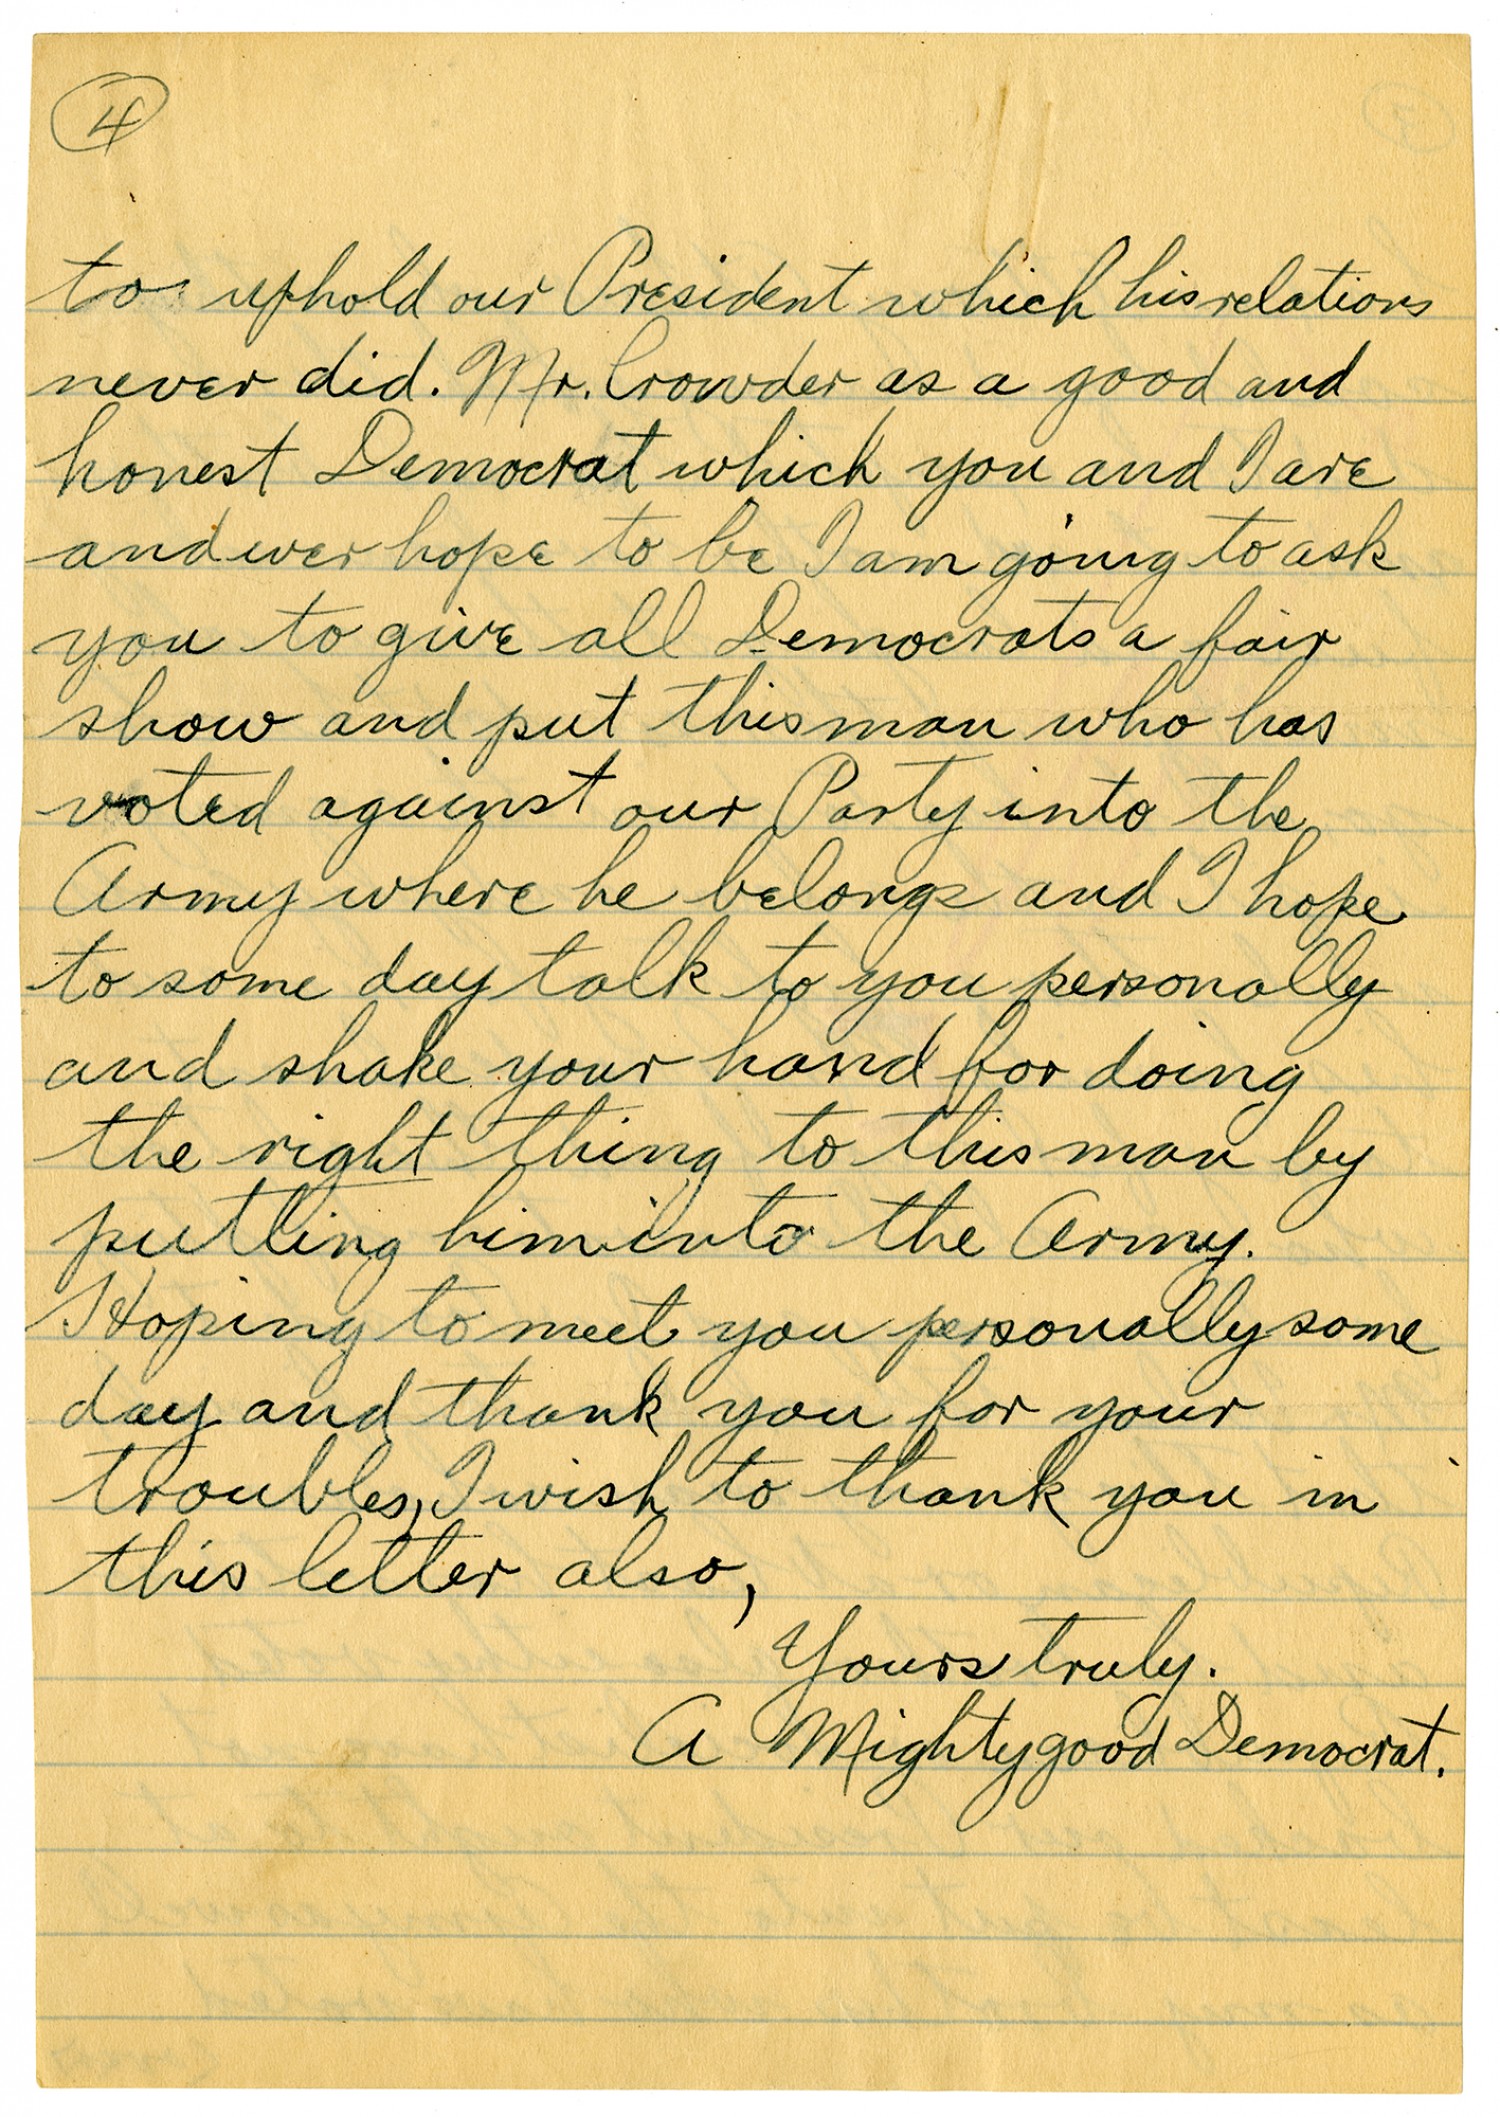 4
to uphold our President which his relations
never did. Mr. Crowder as a good and
honest Democrat which you and I are
and ever hope to be I am going to ask
you to give all Democrats a fair
show and put this man who has
voted against our Party into the
Army where he belongs and I hope
to some day talk to you personally
and shake your hand for doing
the right thing to this man by
putting him into the Army.
Hoping to meet you personally some
day and thank you for your
troubles, I wish to thank you in
this letter also,
Yours truly.
A Mighty good Democrat.